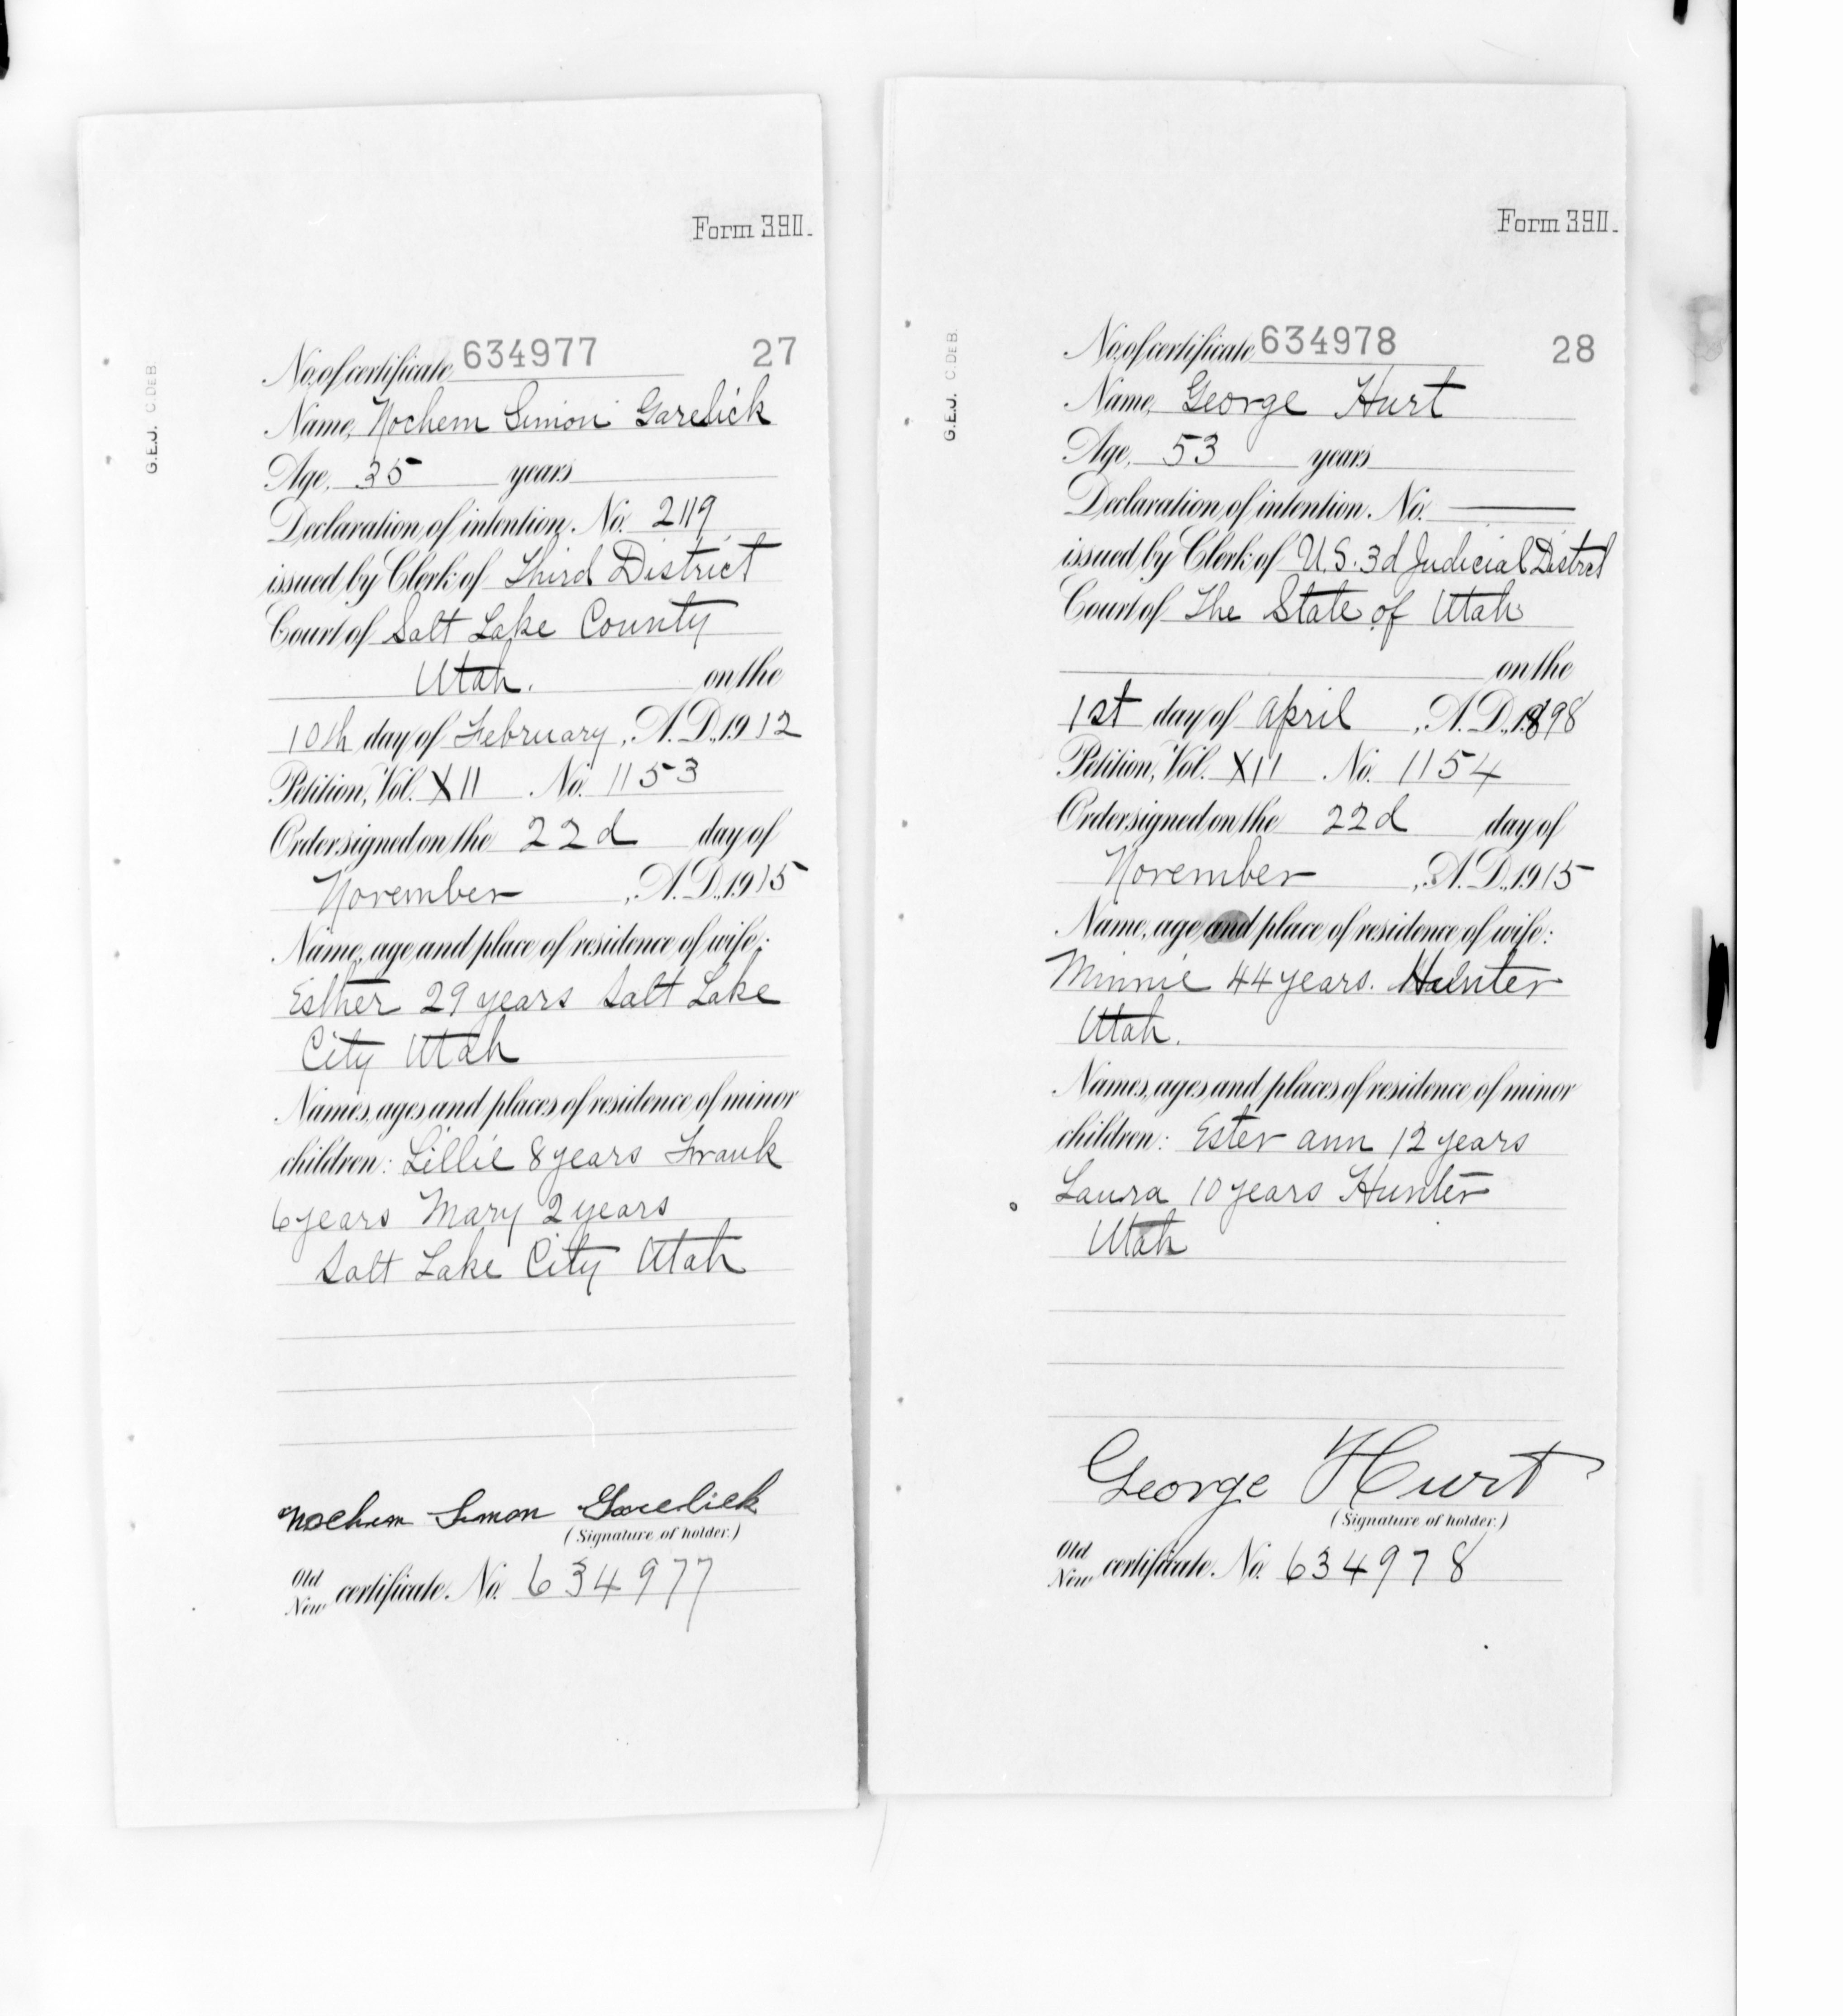 Form 390.
G.E.J. C.DEB.
No. of certificate 634977 27
Name, Nochem Simon Garelick
Age, 35 years
Declaration of intention. No. 2119
issued by Clerk of Third District
Court of Salt Lake County
Utah. on the
10th day of February, A.D., 1912
Petition, Vol. XII No. 1153
Order signed on the 22d day of
November, A.D., 1915
Name, age and place of residence of wife:
Esther 29 years Salt Lake
City Utah
Names, ages and places of residence of minor
children: Lillie 8 years Frank
6 years Mary 2 years
Salt Lake City Utah
Nochem Simon Garelick
(Signature of holder.)
Old
New certificate. No. 634977
Form 390.
G.E.J. C.DEB.
No. of certificate 634978 28
Name, George Hurt
Age, 53 years
Declaration of intention. No. ——
issued by Clerk of U.S. 3d Judicial District
Court of The State of Utah
on the
1st day of April, A.D., 1898
Petition, Vol. XII No. 1154
Order signed on the 22d day of
November, A.D., 1915
Name, age and place of residence of wife:
Minnie 44 years. Hunter
Utah.
Names, ages and places of residence of minor
children: Ester ann 12 years
Laura 10 years Hunter
Utah
George Hurt
(Signature of holder.)
Old
New certificate. No. 634978